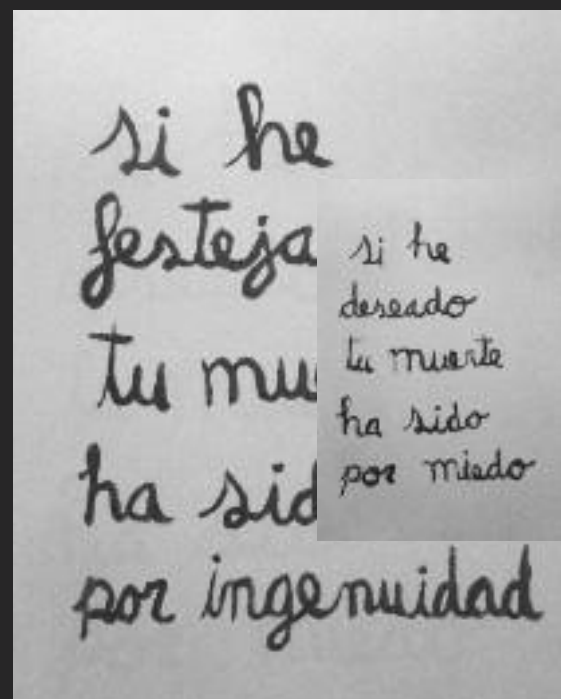 si he
festeja
tu mu
ha sid
por ingenuidad
si he
deseado
tu muerte
ha sido
por miedo